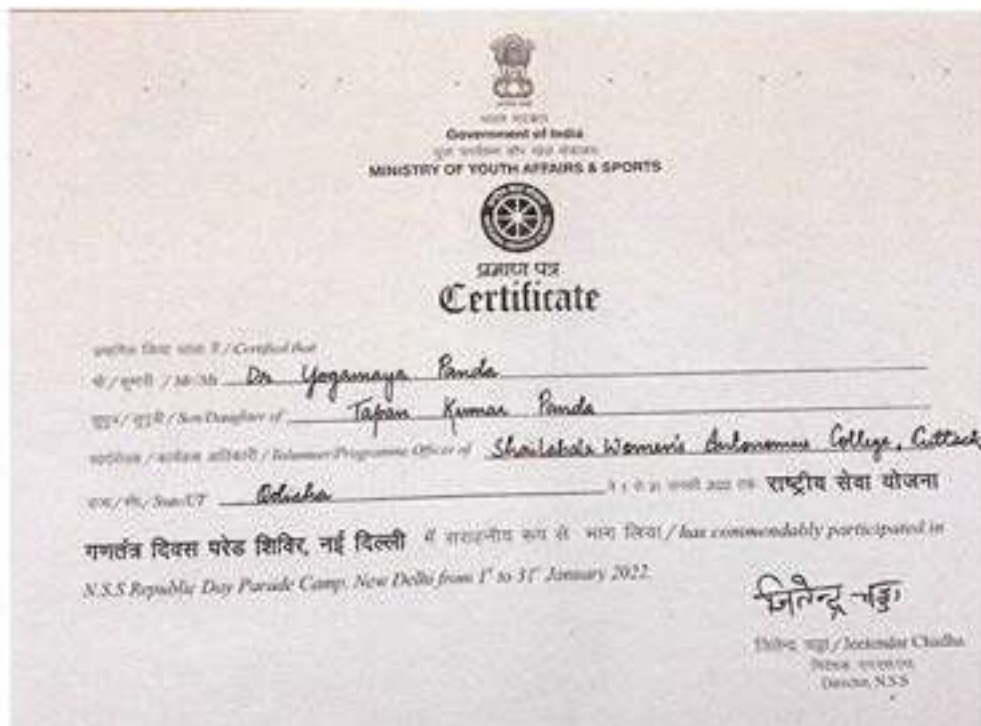 भारत सरकार
Government of India
MINISTRY OF YOUTH AFFAIRS & SPORTS
प्रमाण पत्र
Certificate
प्रमाणित किया जाता है / Certified that
श्री / सुश्री / Mr/Ms Dr Yogamaya Panda
सुपुत्र / सुपुत्री / Son/Daughter of Tapan Kumar Panda
स्वयंसेवक / कार्यक्रम अधिकारी / Volunteer/Programme Officer of Shailabala Women's Autonomous College, Cuttack
State/UT Odisha राष्ट्रीय सेवा योजना
गणतंत्र दिवस परेड शिविर, नई दिल्ली में सराहनीय रूप से भाग लिया / has commendably participated in
N.S.S Republic Day Parade Camp, New Delhi from 1st to 31st January 2022.
जितेन्द्र चड्ढा
जितेन्द्र चड्ढा / Jeetendar Chadha
Director, N.S.S